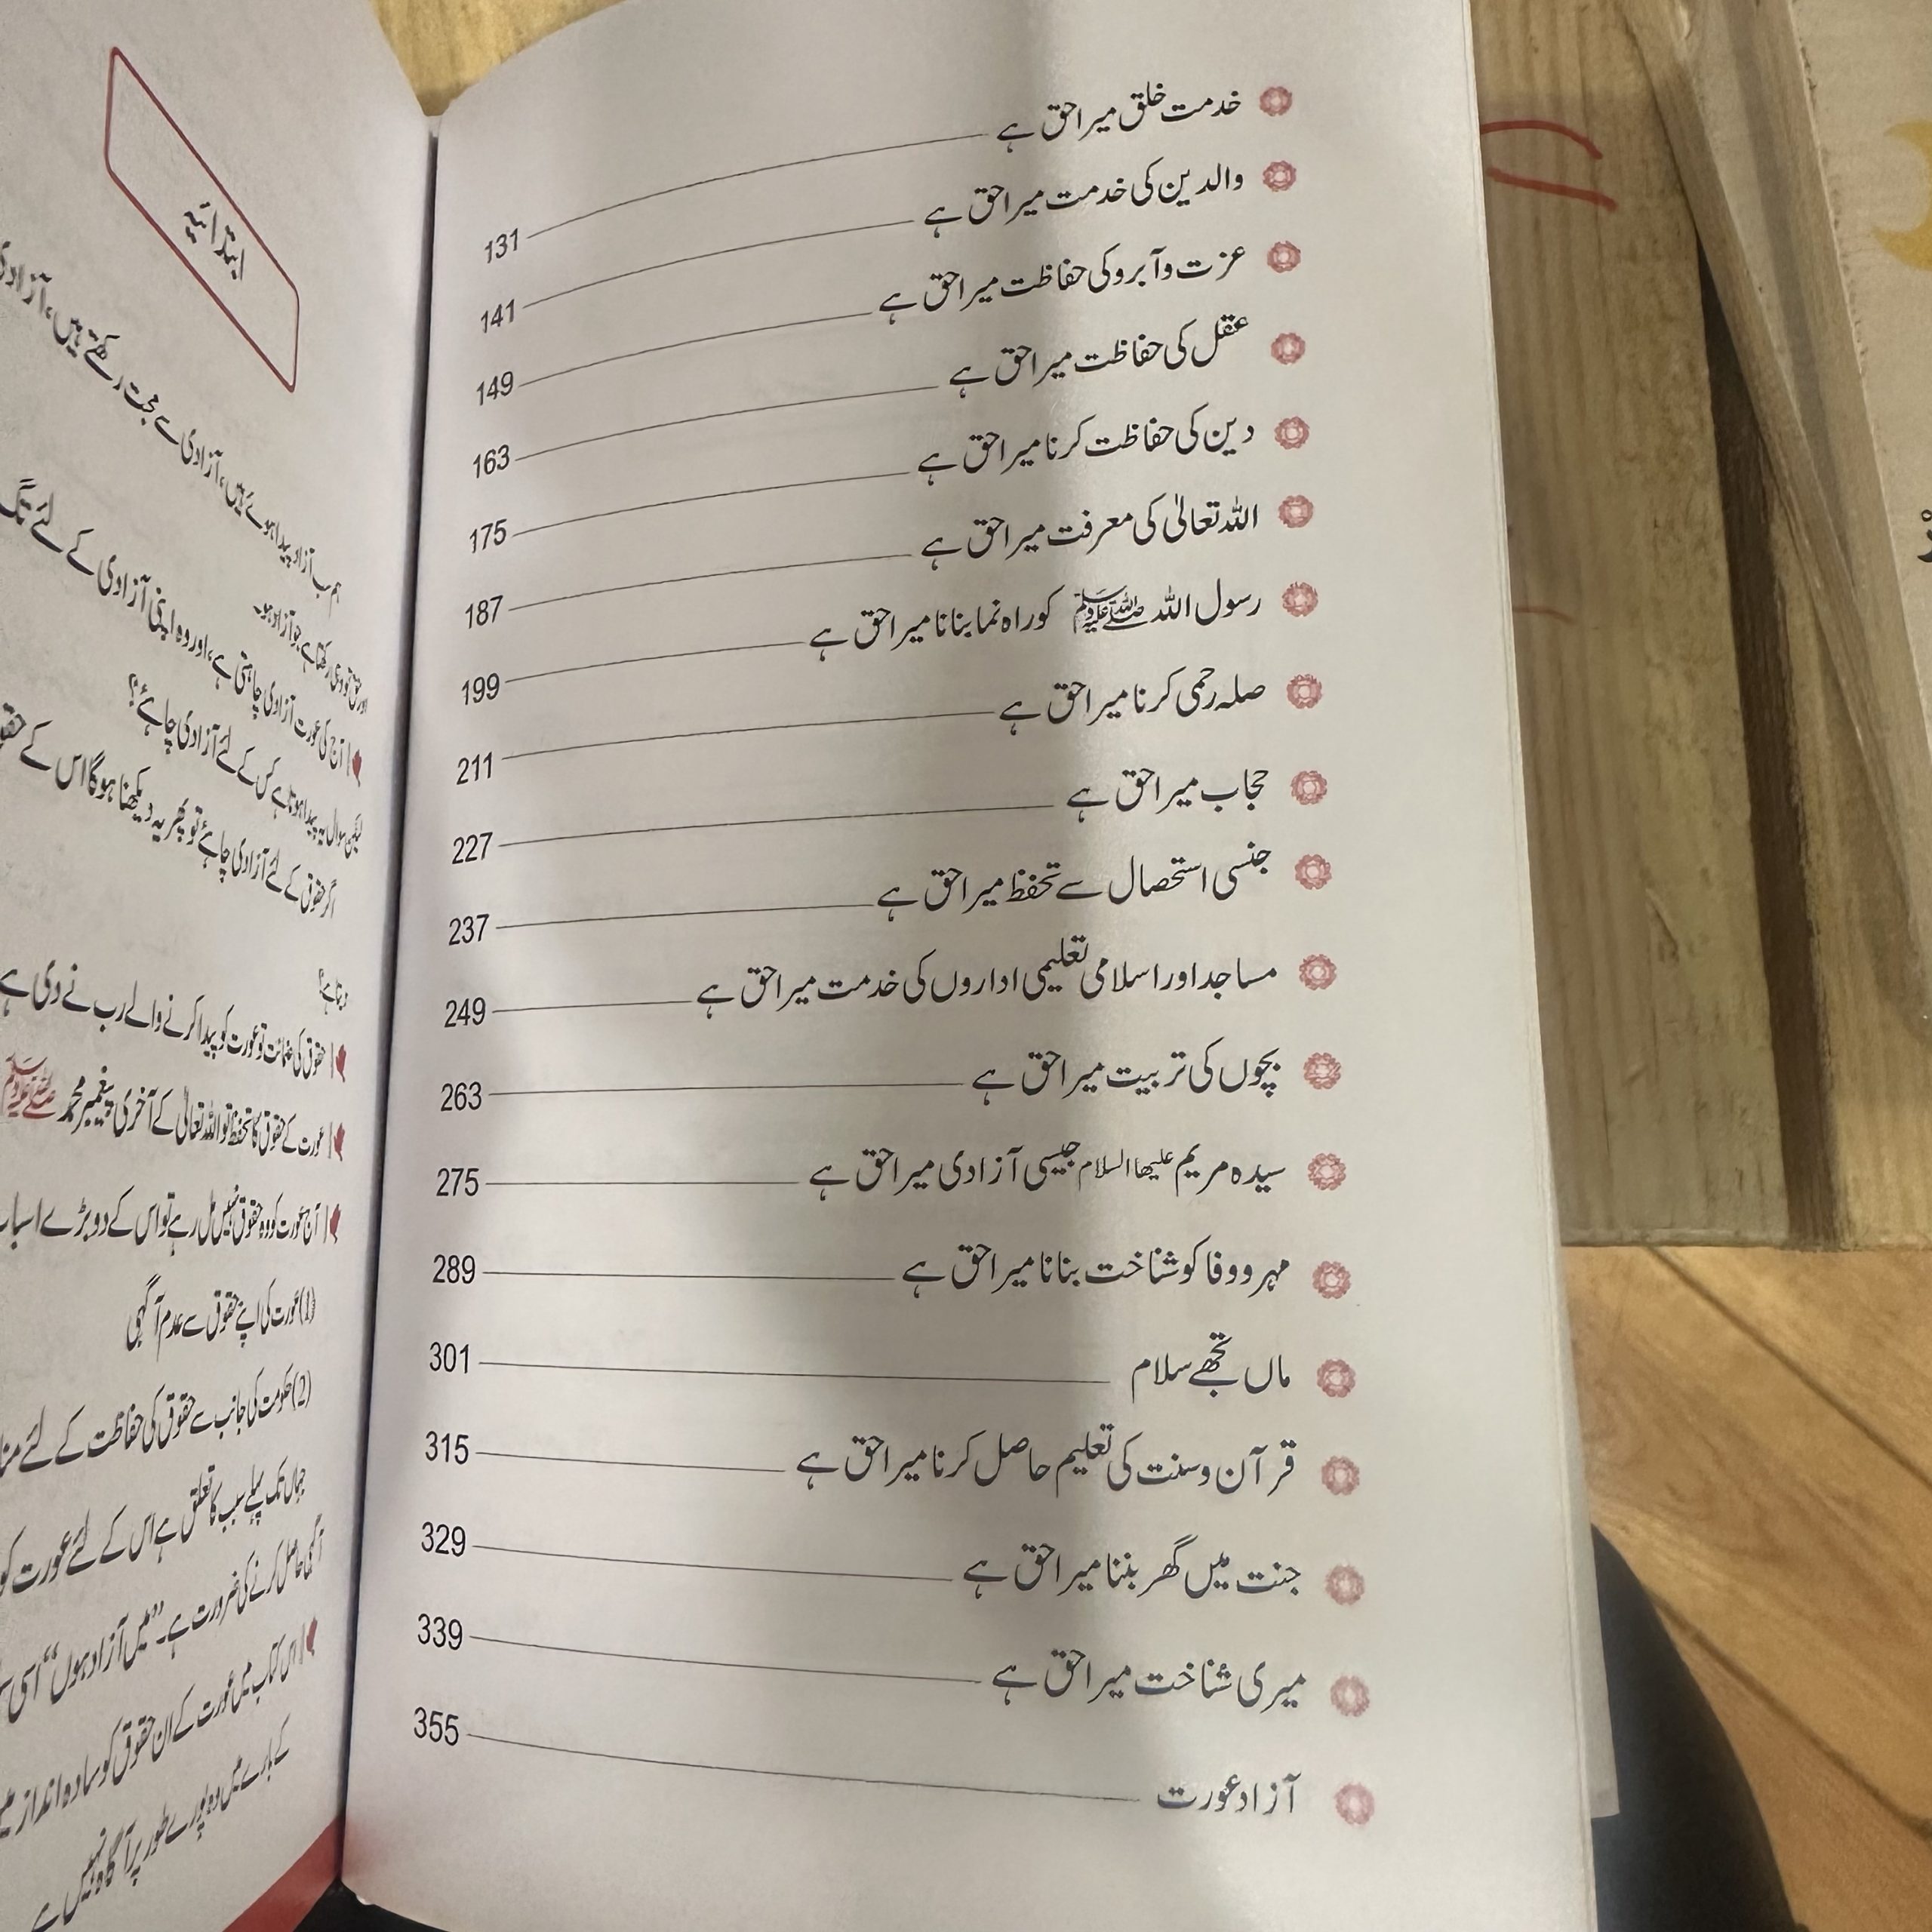 خدمت خلق میرا حق ہے 131
والدین کی خدمت میرا حق ہے 141
عزت و آبرو کی حفاظت میرا حق ہے 149
عقل کی حفاظت میرا حق ہے 163
دین کی حفاظت کرنا میرا حق ہے 175
اللہ تعالیٰ کی معرفت میرا حق ہے 187
رسول اللہ ﷺ کو راہ نما بنانا میرا حق ہے 199
صلہ رحمی کرنا میرا حق ہے 211
حجاب میرا حق ہے 227
جنسی استحصال سے تحفظ میرا حق ہے 237
مساجد اور اسلامی تعلیمی اداروں کی خدمت میرا حق ہے 249
بچوں کی تربیت میرا حق ہے 263
سیدہ مریم علیھا السلام جیسی آزادی میرا حق ہے 275
مہر و وفا کو شناخت بنانا میرا حق ہے 289
ماں تجھے سلام 301
قرآن و سنت کی تعلیم حاصل کرنا میرا حق ہے 315
جنت میں گھر بننا میرا حق ہے 329
میری شناخت میرا حق ہے 339
آزاد عورت 355
ابتدائیہ
ہم سب آزاد پیدا ہوئے ہیں، آزادی سے محبت رکھتے ہیں، آزادی
آج کی عورت آزادی چاہتی ہے، اور وہ اپنی آزادی کے لئے
لیکن سوال یہ پیدا ہوتا ہے کس کے لئے آزادی چاہئے؟
اگر حقوق کے لئے آزادی چاہئے تو پھر یہ دیکھنا ہوگا اس کے
حقوق کی ضمانت تو عورت کو پیدا کرنے والے رب نے دی ہے
عورت کے حقوق کا تحفظ تو اللہ تعالیٰ کے آخری پیغمبر محمد ﷺ
آج عورت کو وہ حقوق نہیں مل رہے تو اس کے دو بڑے
(1) عورت کی اپنے حقوق سے عدم آگہی
(2) حکومت کی جانب سے حقوق کی حفاظت کے لئے
جہاں تک پہلے سبب کا تعلق ہے اس کے لئے عورت کو
آگہی حاصل کرنے کی ضرورت ہے۔ "میں آزاد ہوں" اسی
اس کتاب میں عورت کے ان حقوق کو سادہ انداز میں
کے بارے میں وہ پورے طور پر آگاہ نہیں ہے